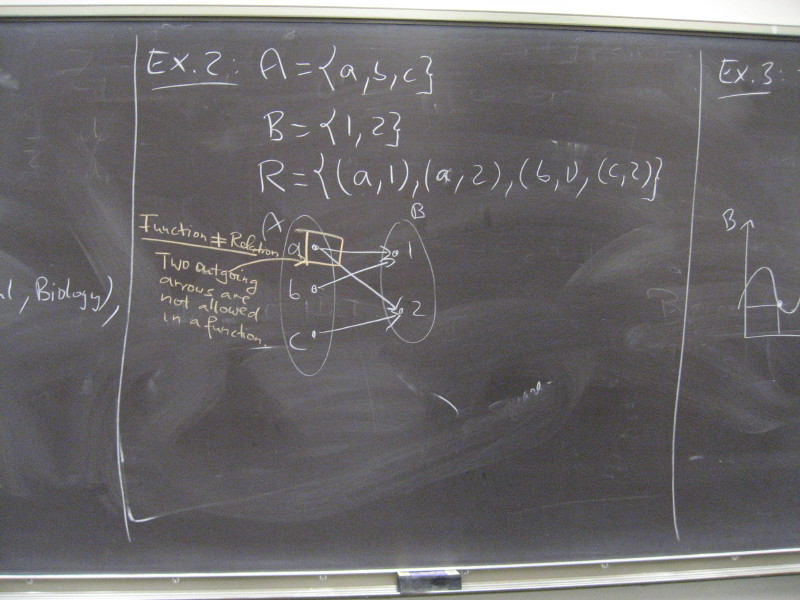 Ex. 2: A = {a, b, c}
B = {1, 2}
R = {(a, 1), (a, 2), (b, 1), (c, 2)}
Function ≠ Relation
Two outgoing
arrows are
not allowed
in a function.
A
B
a
b
c
1
2
, Biology),
Ex. 3:
B